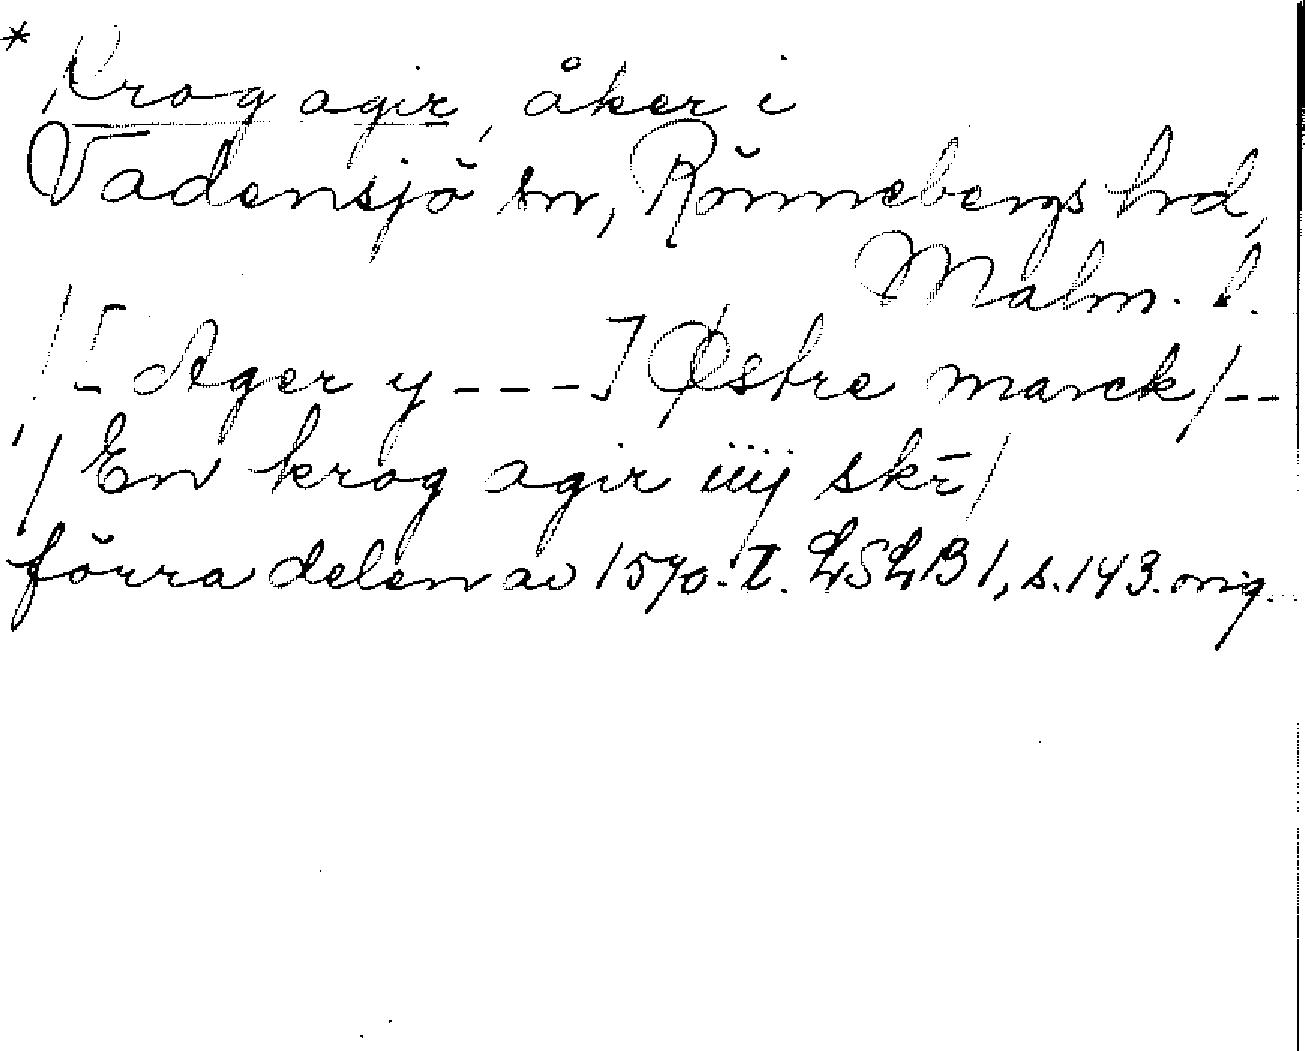 * Krog agir, åker i
Vadensjö sn, Rönnebergs hrd,
Malm. l.
/[Ager y - - - ] Østre marck/--
/En krog agir iiij sk̄/
förra delen av 1570-t. LSLB 1, s. 143. orig.